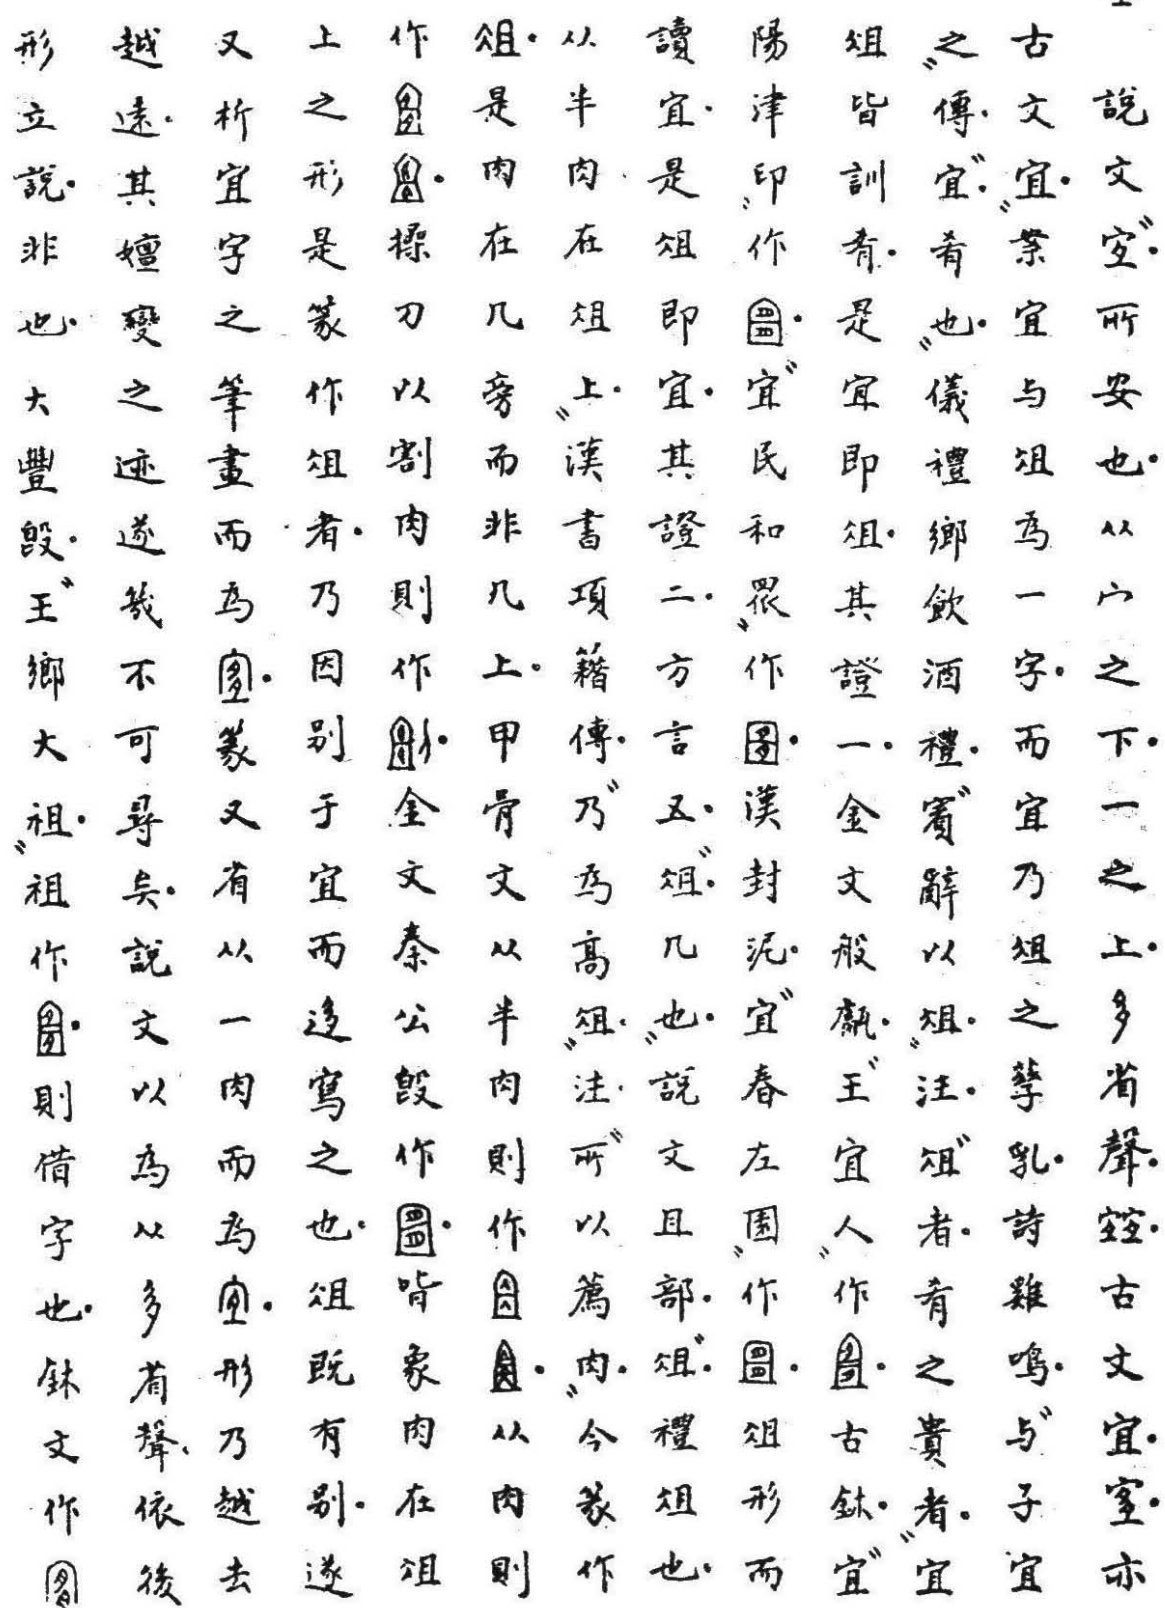 說文宜所安也从宀之下一之上多省聲古文宜亦
古文宜業宜与俎為一字而宜乃俎之孳乳詩雞鳴与子宜
之傳宜肴也儀禮鄉飲酒禮賓辭以俎注俎者肴之貴者宜
俎皆訓肴是宜即俎其證一金文般甗王宜人作古鉥宜
陽津印作宜民和眾作漢封泥宜春左園作俎形而
讀宜是俎即宜其證二方言五俎几也說文且部俎禮俎也
从半肉在俎上漢書項籍傳乃為高俎注所以薦肉今篆作
俎是肉在几旁而非几上甲骨文从半肉則作从肉則
作操刀以割肉則作金文秦公𣪘作皆象肉在俎
上之形是篆作俎者乃因別于宜而迻寫之也俎既有別遂
又析宜字之筆畫而為篆又省从一肉而為形乃越去
越遠其嬗變之迹遂幾不可尋矣說文以為从多省聲依後
形立說非也大豐𣪘王鄉大祖祖作則借字也鉥文作